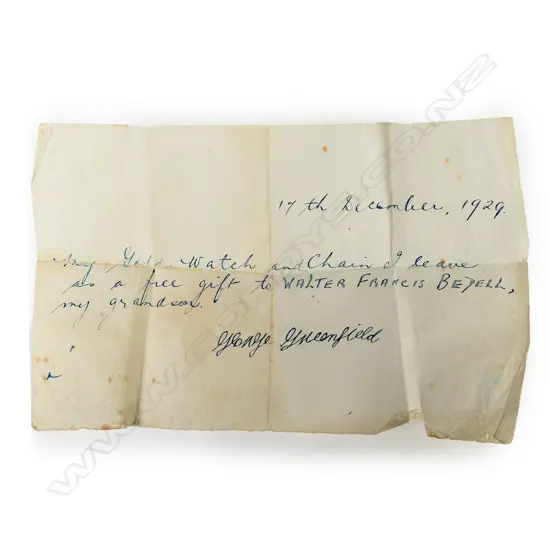 17th December, 1929.
My Gold Watch and Chain I leave
as a free gift to WALTER FRANCIS BEDELL,
my grandson.
George Greenfield